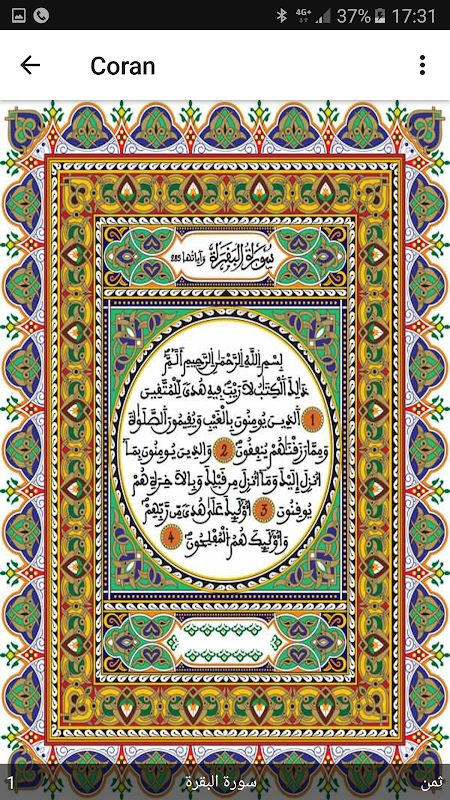 4G+ 37% 17:31
Coran
سورة البقرة وآياتها 285
بسم الله الرحمن الرحيم الم
ذلك الكتب لا ريب فيه هدى للمتقين
1 الذين يومنون بالغيب ويقيمون الصلوة
ومما رزقنهم ينفقون 2 والذين يومنون بما
أنزل إليك وما أنزل من قبلك وبالاخرة هم
يوقنون 3 أوليك على هدى من ربهم
وأوليك هم المفلحون 4
ثمن سورة البقرة 1